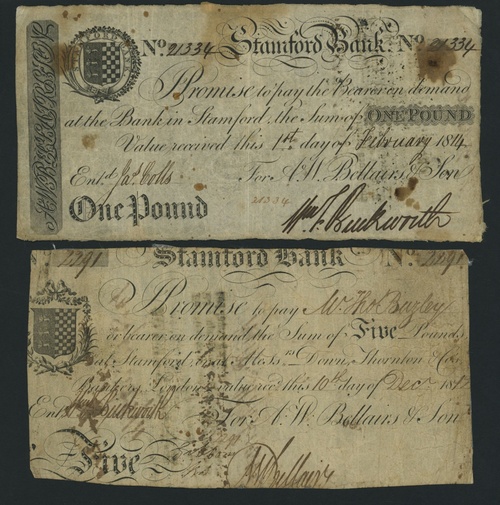 No. 21334 Stamford Bank No. 21334
I Promise to pay the Bearer on demand
at the Bank in Stamford, the Sum of ONE POUND
Value received this 1st day of February 1814
Entd. Jas. Colls For A.W. Bellairs & Son
21334
One Pound
2291 Stamford Bank No. 2291
I Promise to pay Mr Thos Bagley
or bearer on demand, the Sum of Five Pounds
at Stamford, or at Messrs. Down, Thornton & Co.
Bankers London value recd. this 10th day of Decr
Entd. For A.W. Bellairs & Son
Five